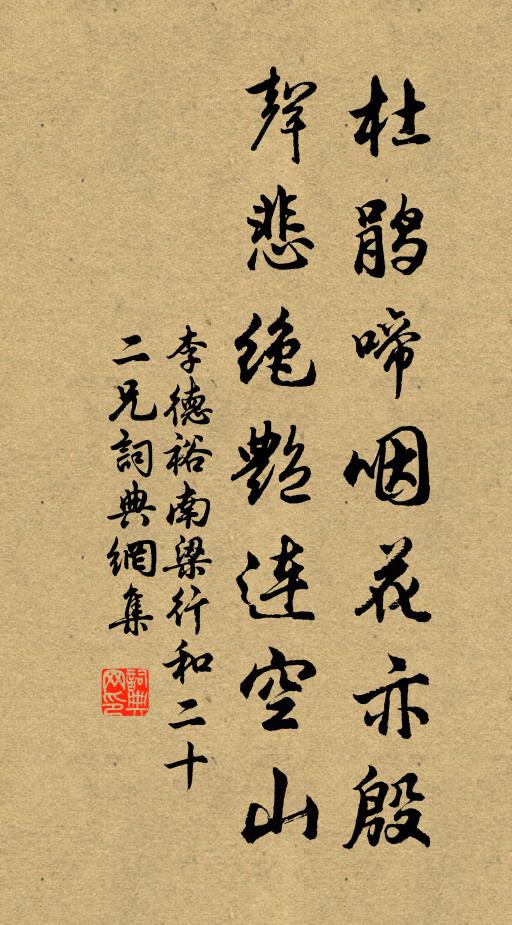 杜鹃啼咽花亦殷
聲悲绝艷连空山
李德裕南梁行和二十
二兄詞典網集
詞典网印